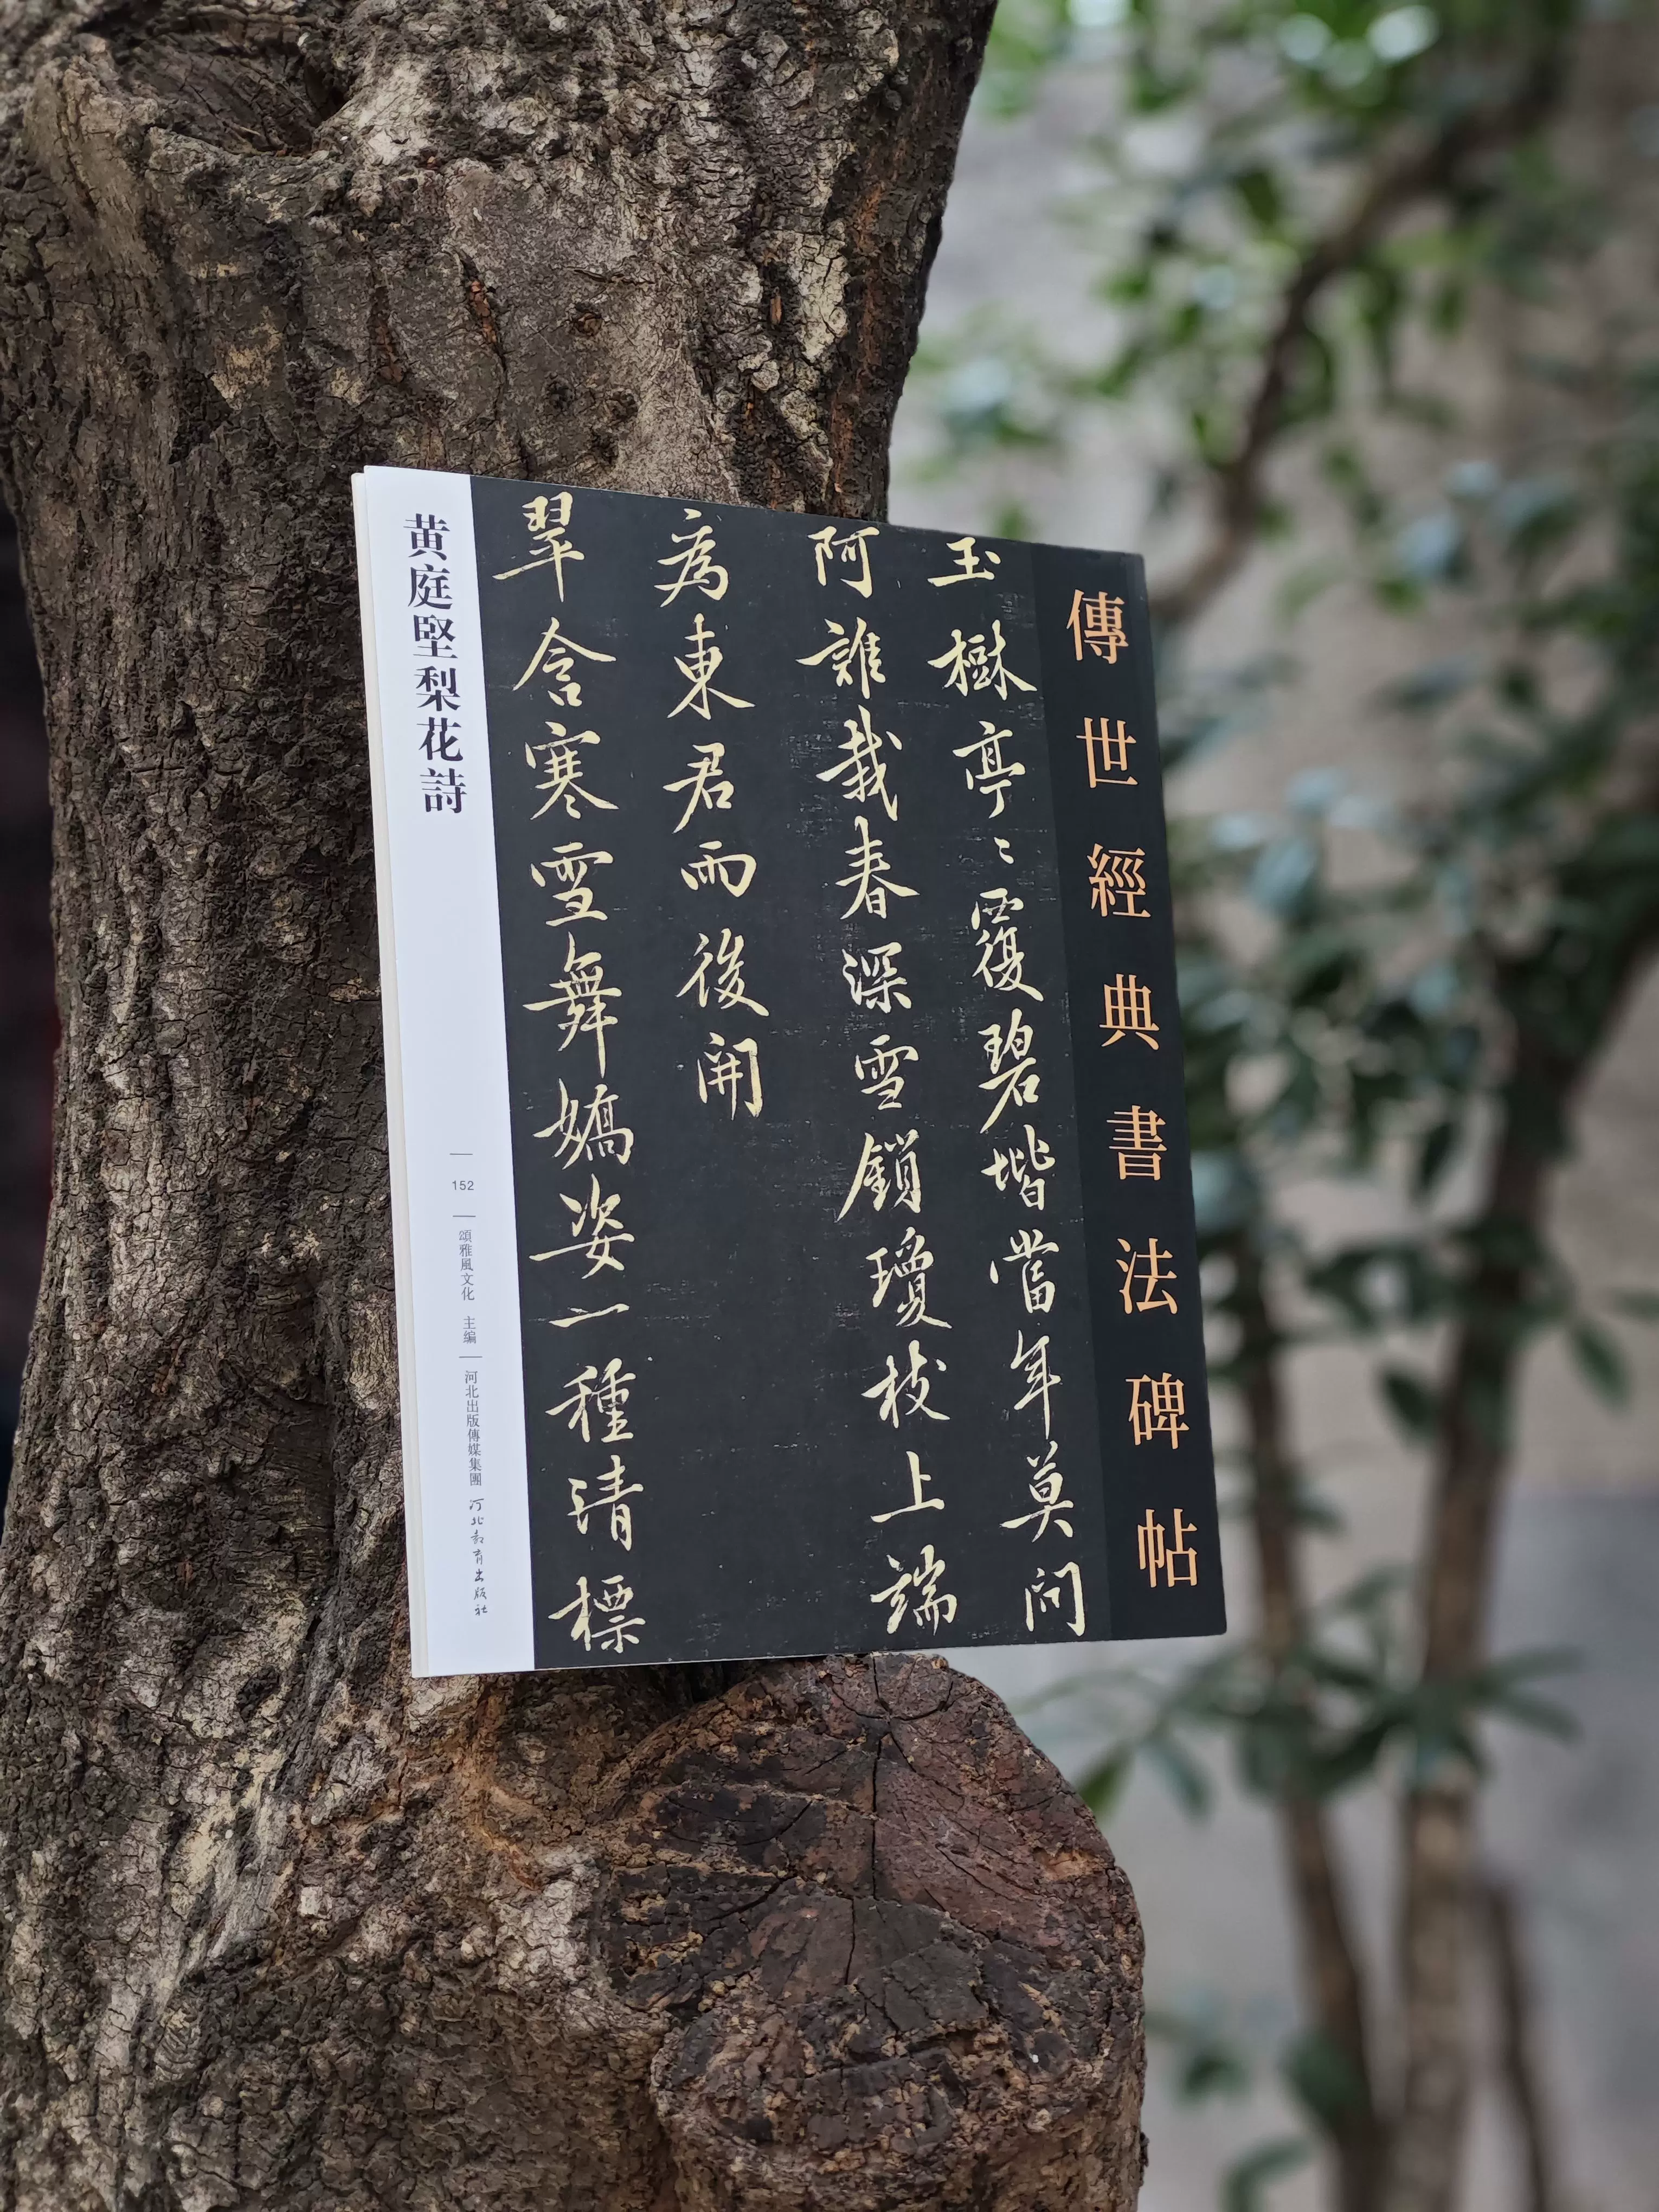 傳世經典書法碑帖
玉樹亭〻覆碧堦當年莫问
阿誰栽春深雪鎖瓊枝上端
為東君雨後開
翠含寒雪舞嬌姿一種清標
黄庭堅梨花詩
152
頌雅風文化 主编
河北出版傳媒集團
河北教育出版社